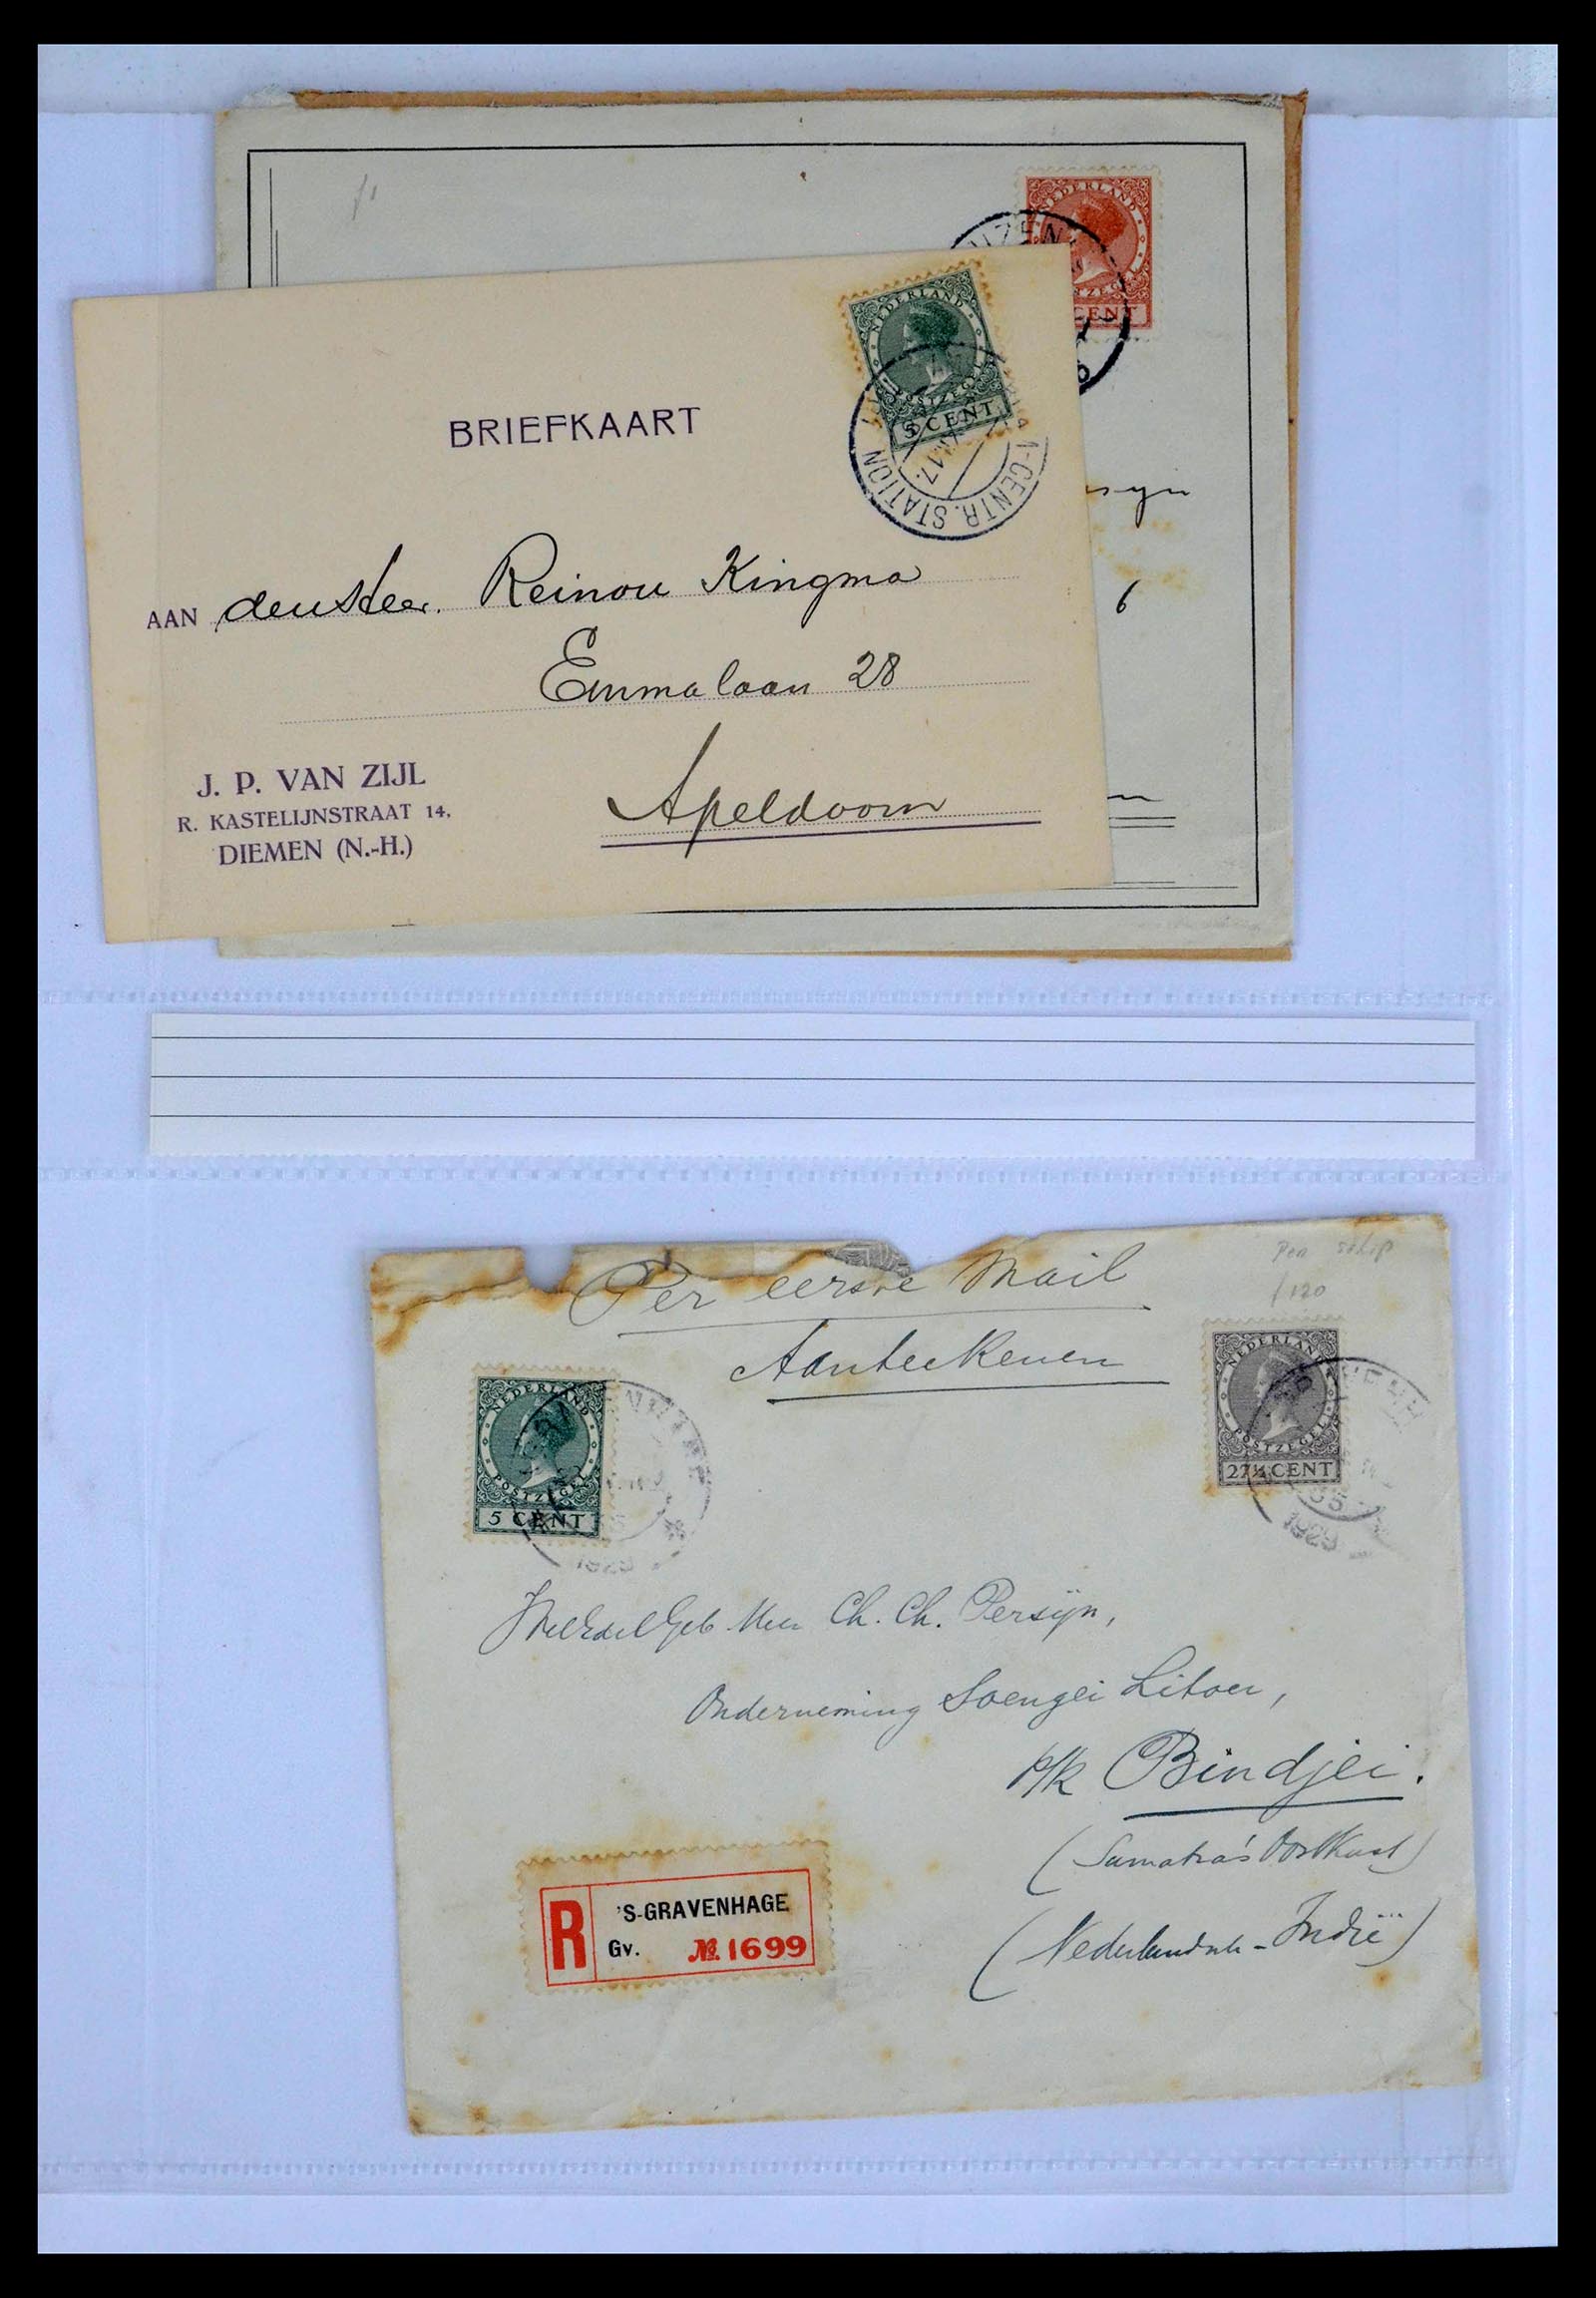 NEDERLAND
POSTZEGEL
CENT
NEDERLAND
POSTZEGEL
5 CENT
CENTR. STATION
BRIEFKAART
AAN den Heer. Reinou Kingma
Emmalaan 28
Apeldoorn
J. P. VAN ZIJL
R. KASTELIJNSTRAAT 14.
DIEMEN (N.-H.)
6
Per schip
/120
Per eerste Mail
Aanteekenen
NEDERLAND
POSTZEGEL
5 CENT
1929
NEDERLAND
POSTZEGEL
27½ CENT
1929
WelEdelGeb Heer Ch. Ch. Persijn,
Onderneming Soengei Litoer,
p/k Bindjei.
(Sumatra's Oostkust)
(Nederlandsch-Indië)
R
'S-GRAVENHAGE
Gv. №. 1699